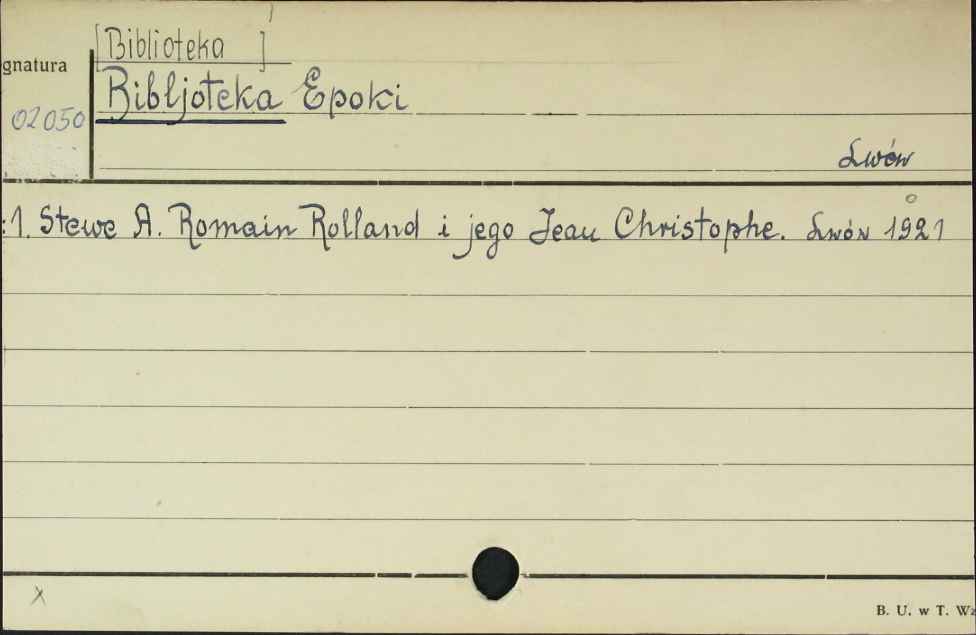 [Biblioteka ]
gnatura
Bibljoteka Epoki
02050
Lwów
:1. Stewe A. Romain Rolland i jego Jean Christophe. Lwów 1921
x
B. U. w T. Wz